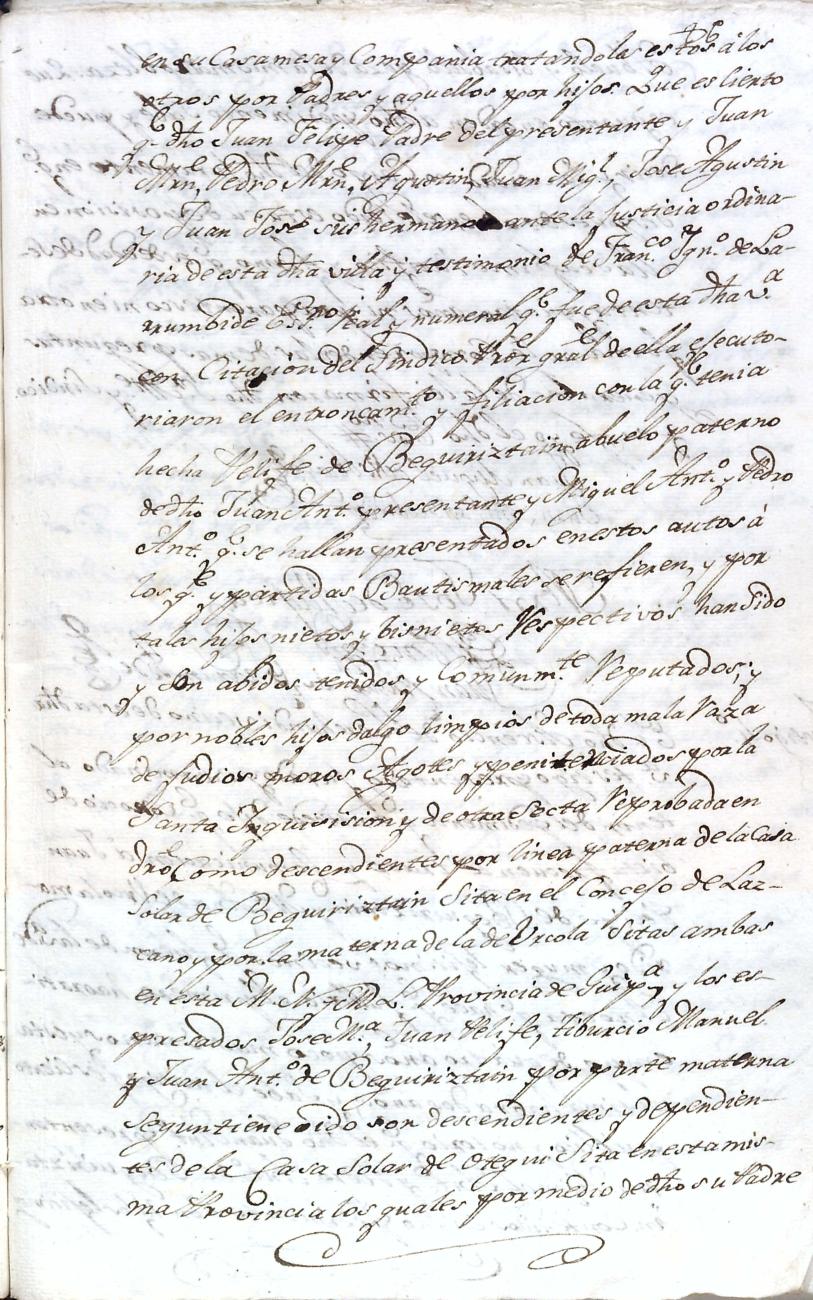 en su Casa mesa y Compania tratandolas estos â los
otros por Padres y aquellos por hijos. Que es cierto
q.e dho Juan Felipe Padre del presentante y Juan
Mrn, Pedro Mrn, Agustin, Juan Mig.l y Jose Agustin
y Juan Jose sus hermanos ante la Justicia ordina-
ria de esta dha villa y testimonio de Fran.co Ygn.o de La-
rrumbide Ess.no Real y numeral q.e fue de esta dha v.a
con Citacion del Sindico Pror gral de ella ejecuto-
riaron el entroncam.to y filiacion con la q.e tenia
hecha Velife de Beguiriztain abuelo paterno
de dho Juan Ant.o presentante y Miguel Ant.o y Pedro
Ant.o q.e se hallan presentados en estos autos á
los q.e y partidas Bautismales se refieren, y por
tales hijos nietos y bisnietos Respectivos han sido
y son abidos tenidos y Comunm.te Reputados; y
por nobles hijos dalgo limpios de toda mala Raza
de Judios moros Agotes y penitenciados por la
Santa Inquisicion y de otra Secta Reprobada en
dro Como descendientes por linea paterna de la Casa
Solar de Beguiriztain Sita en el Concejo de Laz-
cano y por la materna de la de Urcola Sitas ambas
en esta M. N. y M. L. Provincia de Guip.a, y los es-
presados Jose M.a, Juan Velife, Tiburcio Manuel
y Juan Ant.o de Beguiriztain por parte materna
segun tiene oido son descendientes y dependien-
tes de la Casa Solar de Otegui Sita en esta mis-
ma Provincia los quales por medio de dho su Padre